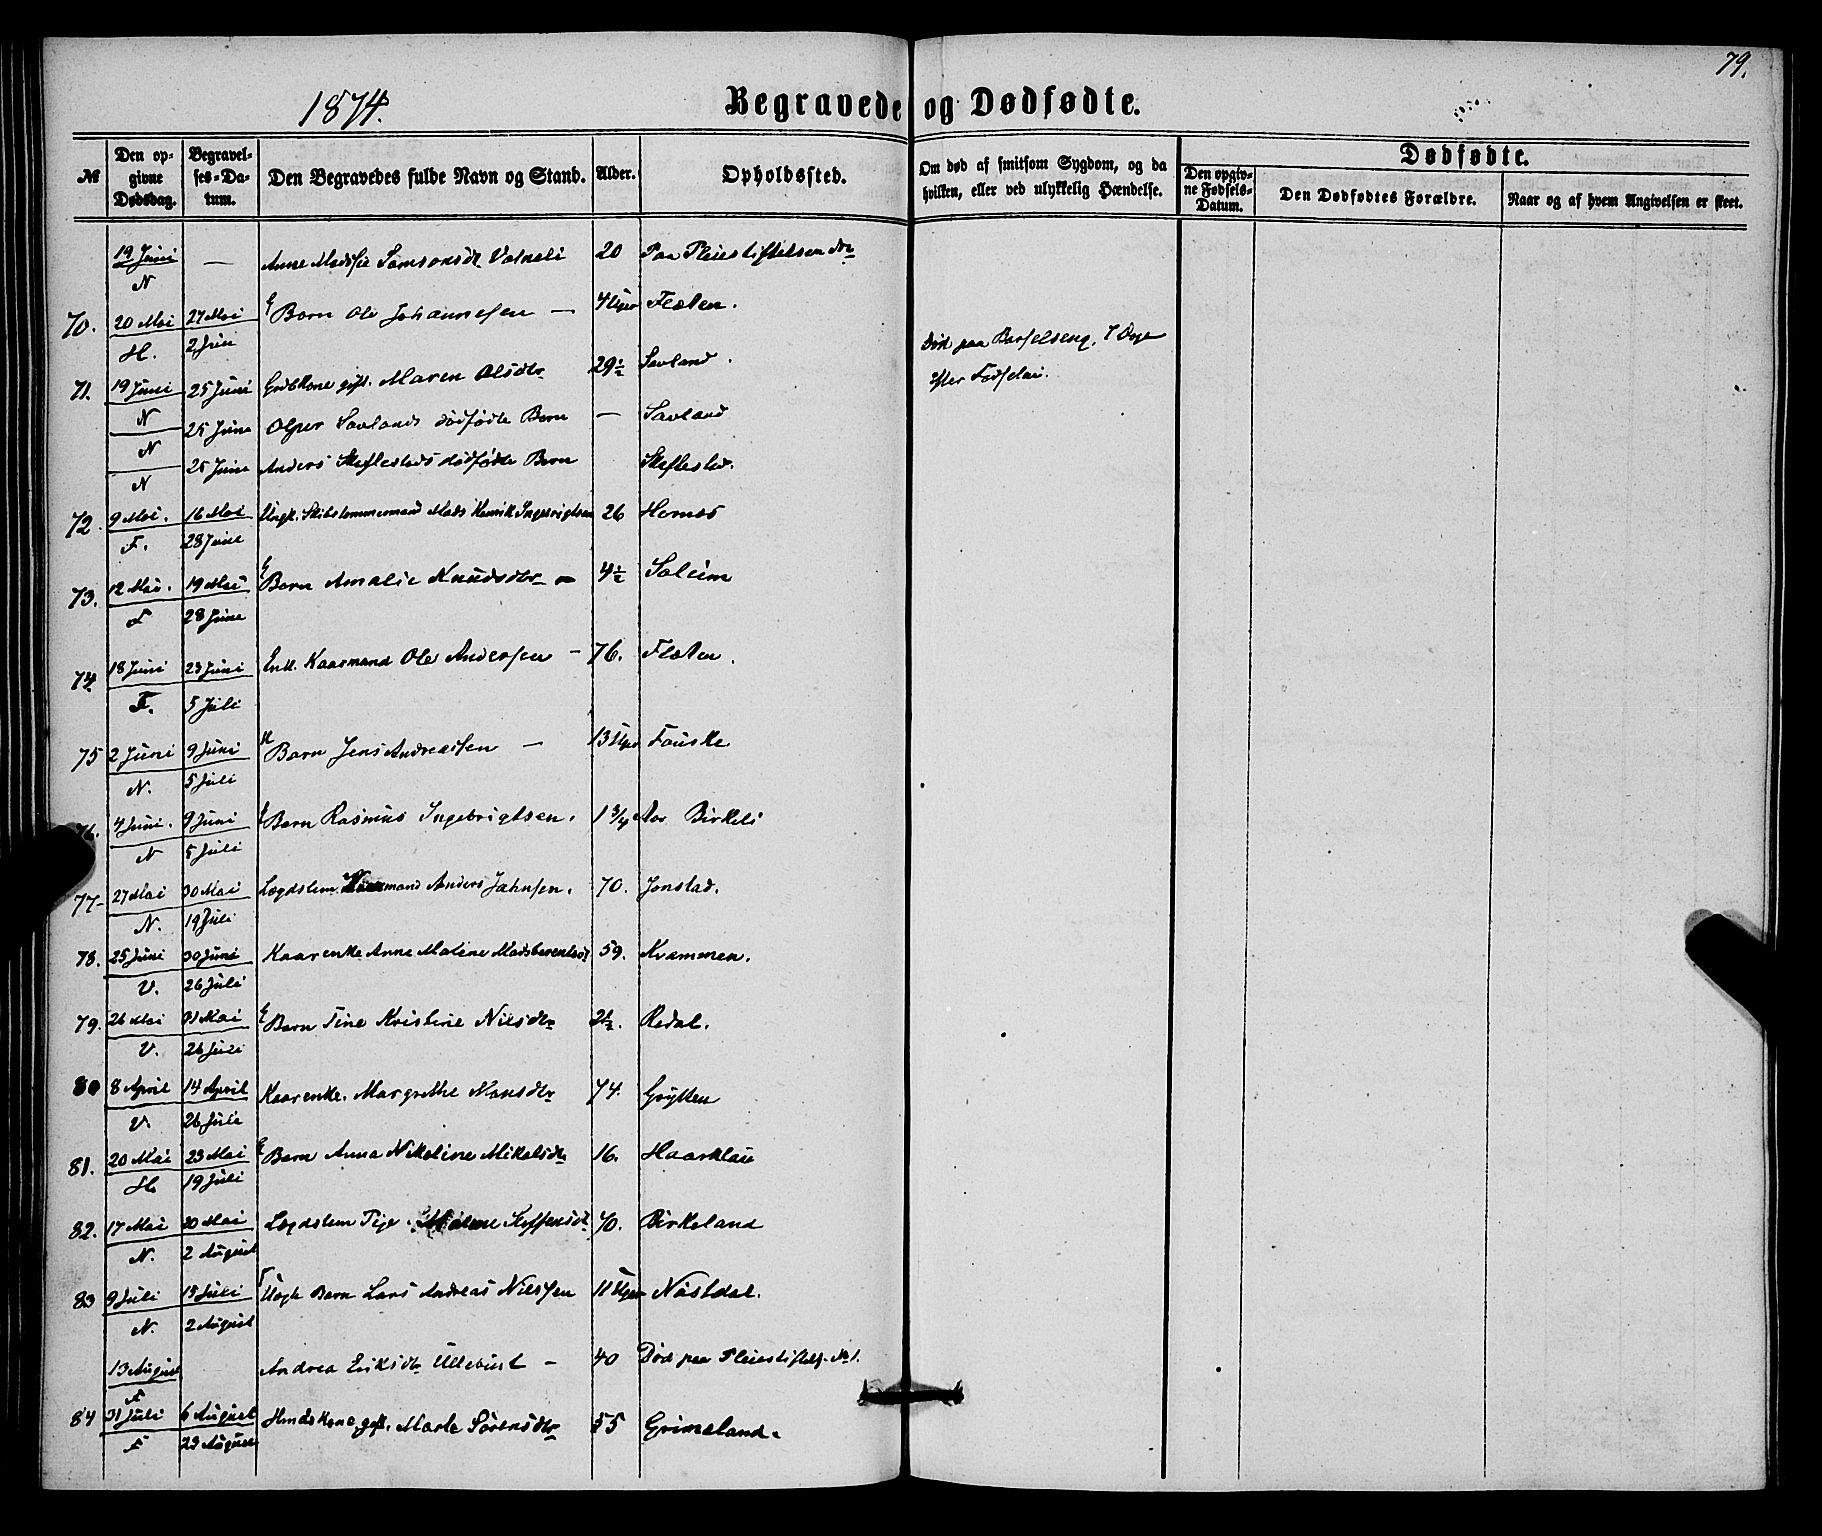 79.
1874.
Begravede og Dødfødte.
№ Den opgivne Dødsdag. Begravelses-Datum. Den Begravedes fulde Navn og Stand. Alder. Opholdssted. Om død af smitsom Sygdom, og da hvilken, eller ved ulykkelig Hændelse. Dødfødte.
Den opgivne Fødsels-Datum. Den Dødfødtes Forældre. Naar og af hvem Angivelsen er skeet.
19 Juni — Anne Madsdr Samsonsdr Vatneli 20 Paa Pleiestiftelsen
N
70. 20 Mai 27 Mai Barn Ole Johannesen — 4 Uger Flaten.
H. 2 Juni
71. 19 Juni 25 Juni gift. Maren Olsdtr 29½ Savland. Død paa Barselseng, 7 Dage
efter Fødselen.
N 25 June Savlands dødfødte Barn — Savland
N 25 June Anders Skeflestads dødfødte Barn Skeflestad.
N
72. 9 Mai. 16 Mai Ungk. Skibstømmermand Mads Henrik Ingebrigtsen 26 Hornes
F. 28 June
73. 12 Mai. 19 Mai Barn Amalie Knudsdtr — 4½ Soleim
F 28 June
74 18 Juni 23 Juni Enk. Kaarmand Ole Andersen — 76. Flaten.
F. 5 Juli
75 2 Juni 9 Juni Barn Jens Andreassen — 13 Uger Fauske
N. 5 Juli
76. 4 Juni. 9 Juni Barn Rasmus Ingebrigtsen. 1 3/4 Birkeli
N 5 Juli
77 27 Mai 30 Mai Lægdslem Kaarmand Anders Jahnsen. 70. Jonstad.
N. 19 Juli
78. 25 Juni 30 Juni Kaarenke Anne Malene Madsberentsdr 59. Kvammen.
V. 26 Juli
79. 26 Mai 31 Mai Barn Tine Kristine Nilsdtr 2½. Redal.
V. 26 Juli
80 8 April 14 April Kaarenke. Margrethe Monsdtr 74. Grytten
V. 26 Julie
81. 20 Mai 23 Mai Barn Anna Nikoline Mikalsdtr 16. Haarklau
H. 19 Juli
82. 17 Mai 20 Mai Lægdslem Pige. Malene Steffensdtr 70. Birkeland
N. 2 August
83 9 Juli 13 Juli Barn Lars Andreas Nilssen 11 Uger Nastdal.
N. 2 August
13 August Andrea Eriksdtr Ullebust — 40 Død paa Pleiestiftels. No 1.
F
84 31 Juli 6 August gift. Marte Sørensdtr 55 Grimeland.
F 23 August